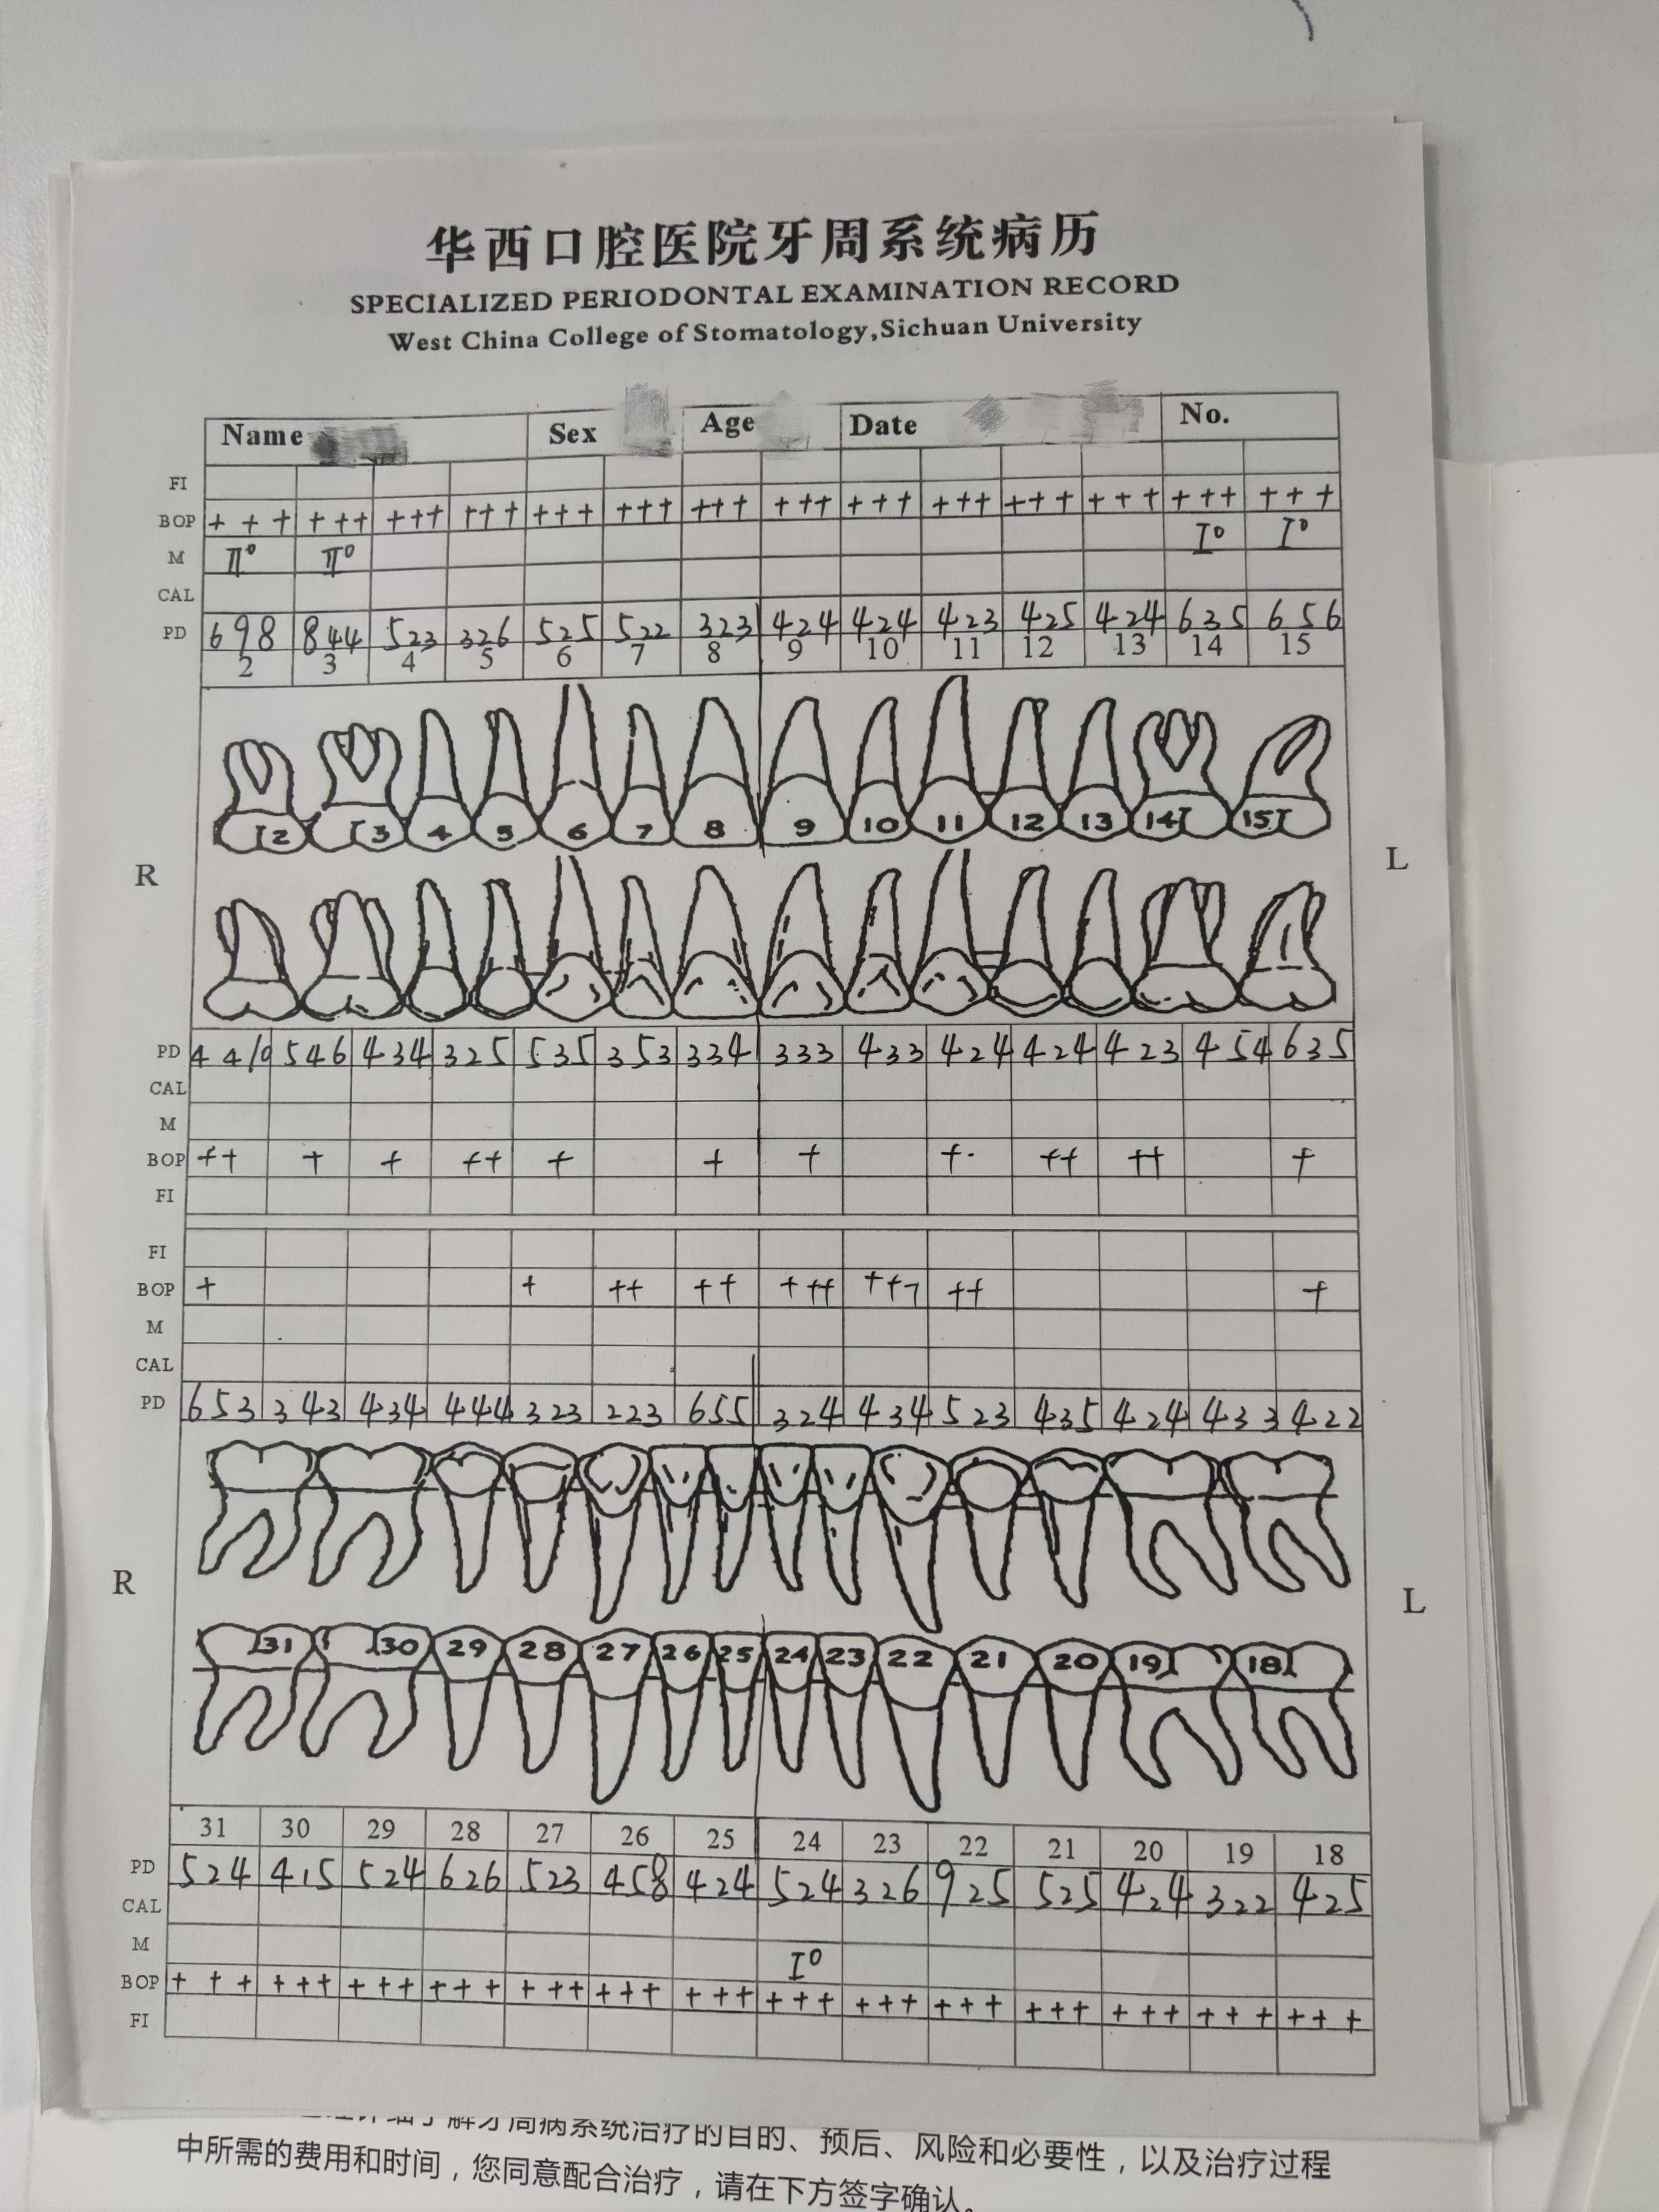 华西口腔医院牙周系统病历
SPECIALIZED PERIODONTAL EXAMINATION RECORD
West China College of Stomatology,Sichuan University
Name Sex Age Date No.
FI
BOP + + + + + + + + + + + + + + + + + + + + + + + + + + + + + + + + + + + + + + + + + +
M II° II° I° I°
CAL
PD 698 844 523 326 525 522 323 424 424 423 425 424 635 656
2 3 4 5 6 7 8 9 10 11 12 13 14 15
2 3 4 5 6 7 8 9 10 11 12 13 14 15
R L
PD 4 4 10 546 434 325 535 353 334 333 433 424 424 423 454 635
CAL
M
BOP ++ + + ++ + + + + ++ ++ +
FI
FI
BOP + + ++ ++ +++ ++ ++ +
M
CAL
PD 653 343 434 444 323 223 655 324 434 523 435 424 433 422
R L
31 30 29 28 27 26 25 24 23 22 21 20 19 18
31 30 29 28 27 26 25 24 23 22 21 20 19 18
PD 524 415 524 626 523 458 424 524 326 925 525 424 322 425
CAL
M I°
BOP + + + + + + + + + + + + + + + + + + + + + + + + + + + + + + + + + + + + + + + + + +
FI
了解牙周病系统治疗的目的、预后、风险和必要性，以及治疗过程
中所需的费用和时间，您同意配合治疗，请在下方签字确认。